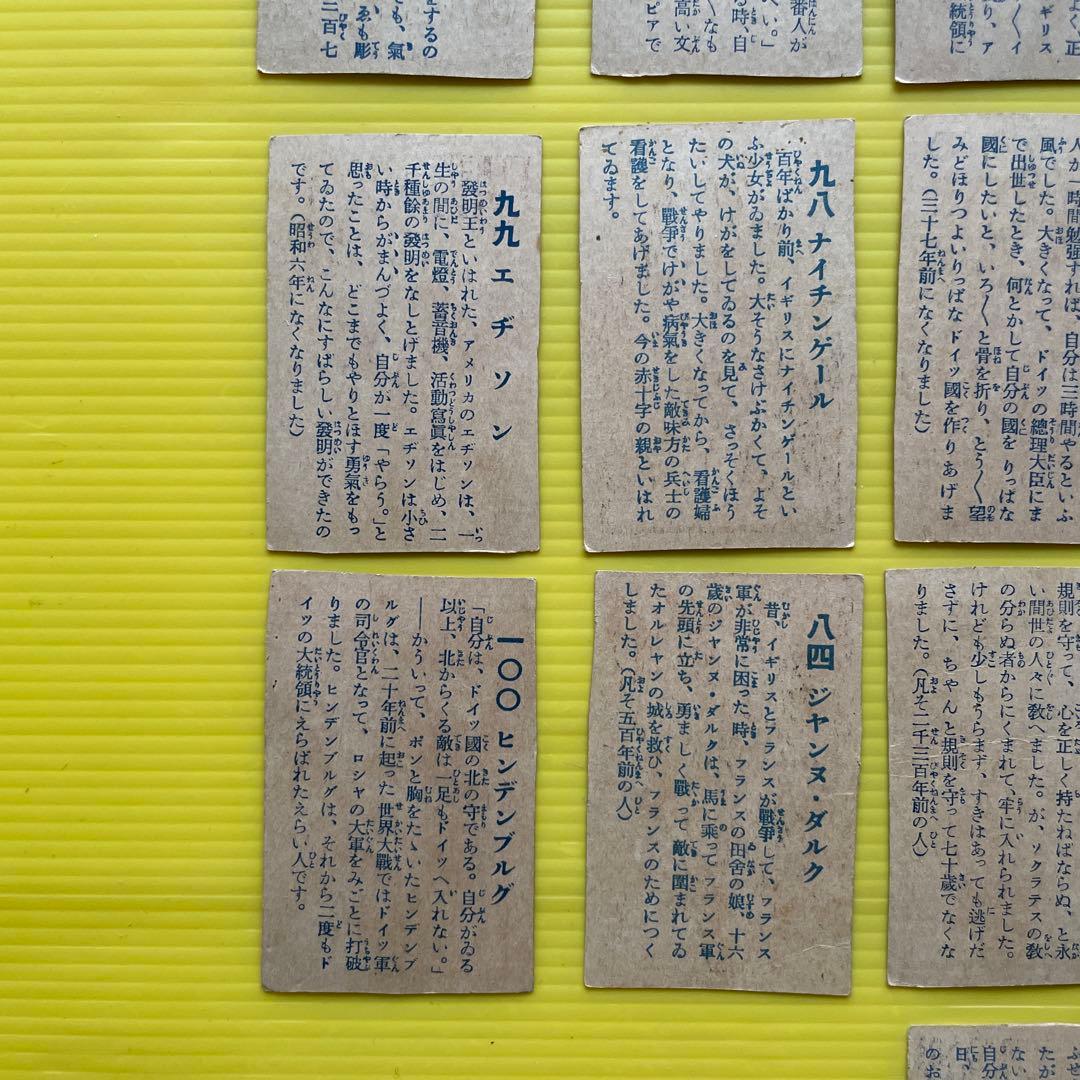 をするの
でも、氣
ゑも彫
三百七
番人が
い。」
る時、自
くなも
高い文
ピアで
よく正
イギリス
〳〵イ
り、ア
統領に
九九 エヂソン
發明王といはれた、アメリカのエヂソンは、一
生の間に、電燈、蓄音機、活動寫眞をはじめ、二
千種餘の發明をなしとげました。エヂソンは小さ
い時からがまんづよく、自分が一度「やらう。」と
思ったことは、どこまでもやりとほす勇氣をもっ
てゐたので、こんなにすばらしい發明ができたの
です。(昭和六年になくなりました)
九八 ナイチンゲール
百年ばかり前、イギリスにナイチンゲールとい
ふ少女がゐました。大そうなさけぶかくて、よそ
の犬が、けがをしてゐるのを見て、さっそくほう
たいしてやりました。大きくなってから、看護婦
となり、戰爭でけがや病氣をした敵味方の兵士の
看護をしてあげました。今の赤十字の親といはれ
てゐます。
人が一時間勉强すれば、自分は三時間やるといふ
風でした。大きくなって、ドイツの總理大臣にま
で出世したとき、何とかして自分の國をりっぱな
國にしたいと、いろ〳〵と骨を折り、とう〳〵望
みどほりつよいりっぱなドイツ國を作りあげま
した。(三十七年前になくなりました)
一〇〇 ヒンデンブルグ
「自分は、ドイツ國の北の守である。自分がゐる
以上、北からくる敵は一足もドイツへ入れない。」
――かういって、ポンと胸をたゝいたヒンデンブ
ルグは、二十年前に起った世界大戰ではドイツ軍
の司令官となって、ロシヤの大軍をみごとに打破
りました。ヒンデンブルグは、それから二度もド
イツの大統領にえらばれたえらい人です。
八四 ジャンヌ・ダルク
昔、イギリスとフランスが戰爭して、フランス
軍が非常に困った時、フランスの田舍の娘、十六
歲のジャンヌ・ダルクは、馬に乘ってフランス軍
の先頭に立ち、勇ましく戰って敵に圍まれてゐ
たオルレヤンの城を救ひ、フランスのためにつく
しました。(凡そ五百年前の人)
規則を守って、心を正しく持たねばならぬ、と永
い間世の人々に敎へました。が、ソクラテスの敎
の分らぬ者からにくまれて、牢に入れられました。
けれども少しもうらまず、すきはあっても逃げだ
さずに、ちゃんと規則を守って七十歲でなくな
りました。(凡そ二千三百年前の人)
ふせ
たが
ない
自分
日、
のお